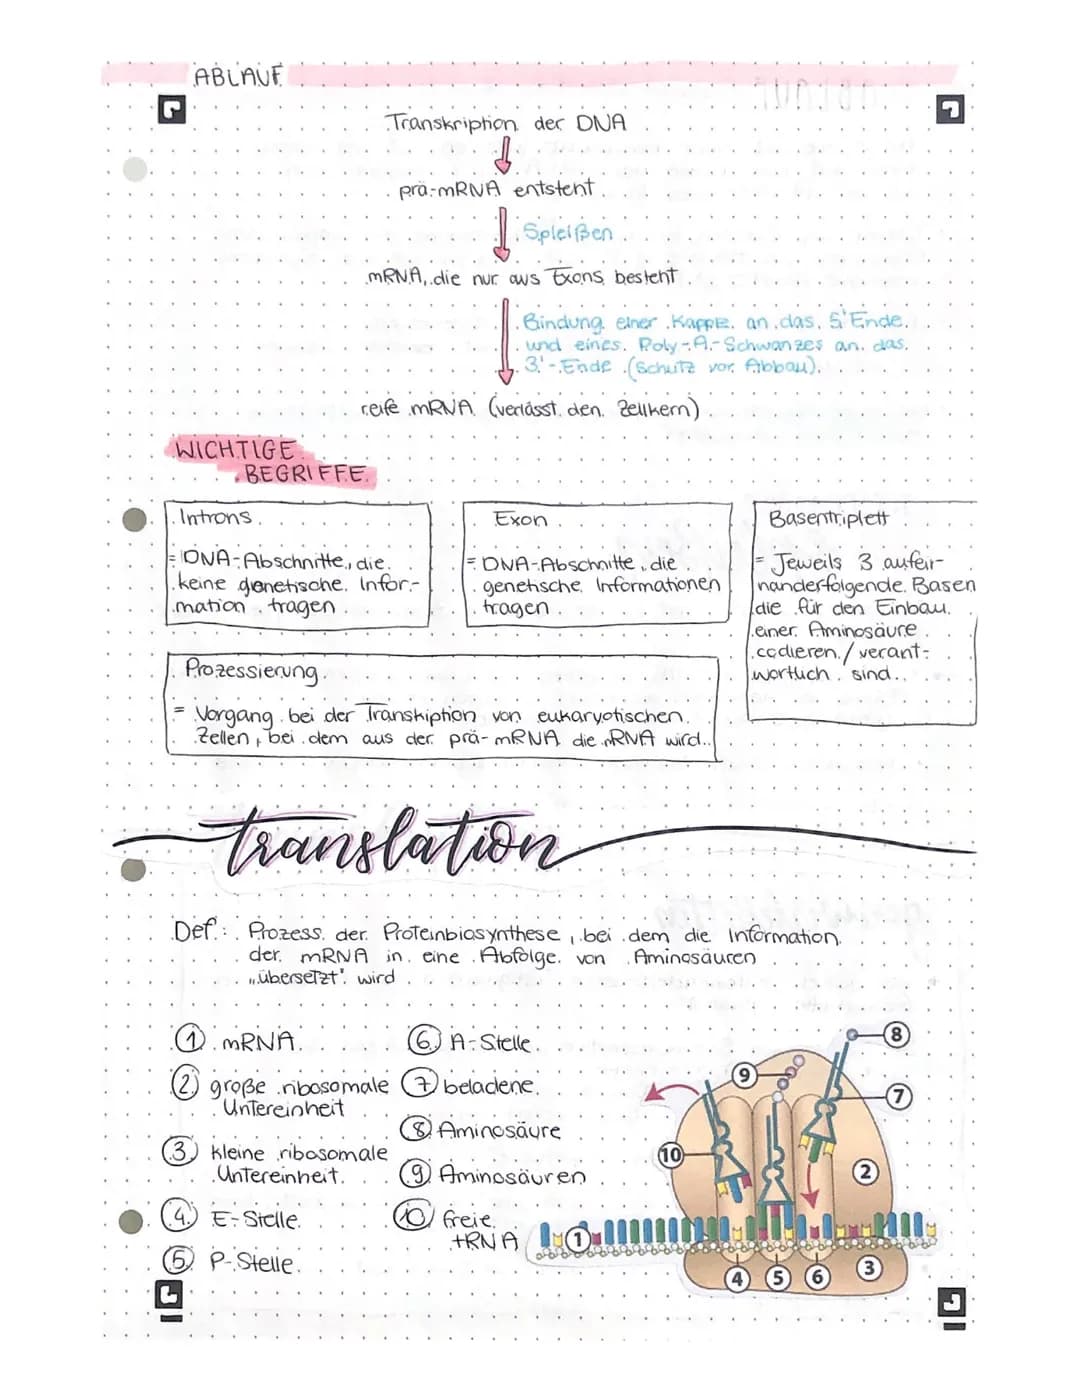 ABLAUF
Transkription der DNA
prä-mRNA entsteht
Spleißen
mRNA, die nur aus Exons besteht
Bindung einer Kappe an das 5' Ende
und eines Poly-A-Schwanzes an das
3'-Ende (Schutz vor Abbau)
reife mRNA (verlässt den Zellkern)
WICHTIGE
BEGRIFFE
Introns
= DNA-Abschnitte, die
keine genetische Infor-
mation tragen
Exon
= DNA-Abschnitte, die
genetische Informationen
tragen
Basentriplett
= Jeweils 3 aufein-
nanderfolgende Basen
die für den Einbau
einer Aminosäure
codieren / verant-
wortlich sind.
Prozessierung
= Vorgang bei der Transkiption von eukaryotischen
Zellen, bei dem aus der prä-mRNA die mRNA wird.
translation
Def.: Prozess der Proteinbiosynthese, bei dem die Information
der mRNA in eine Abfolge von Aminosäuren
„übersetzt" wird
1 mRNA
2 große ribosomale
Untereinheit
3 kleine ribosomale
Untereinheit
4 E-Stelle
5 P-Stelle
6 A-Stelle
7 beladene
8 Aminosäure
9 Aminosäuren
10 freie
tRNA
8
9
7
10
2
1
3
4 5 6